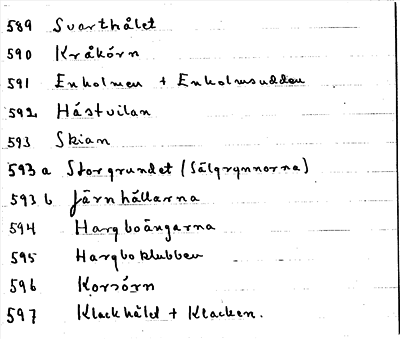 589 Svarthålet
590 Kråkörn
591 Enholmen + Enholmsudden
592 Hästvilan
593 Skian
593 a Storgrundet (Sälgrynnorna)
593 b Järnhällarna
594 Hargboängarna
595 Hargboklubben
596 Korsörn
597 Klackhäld + Klacken.